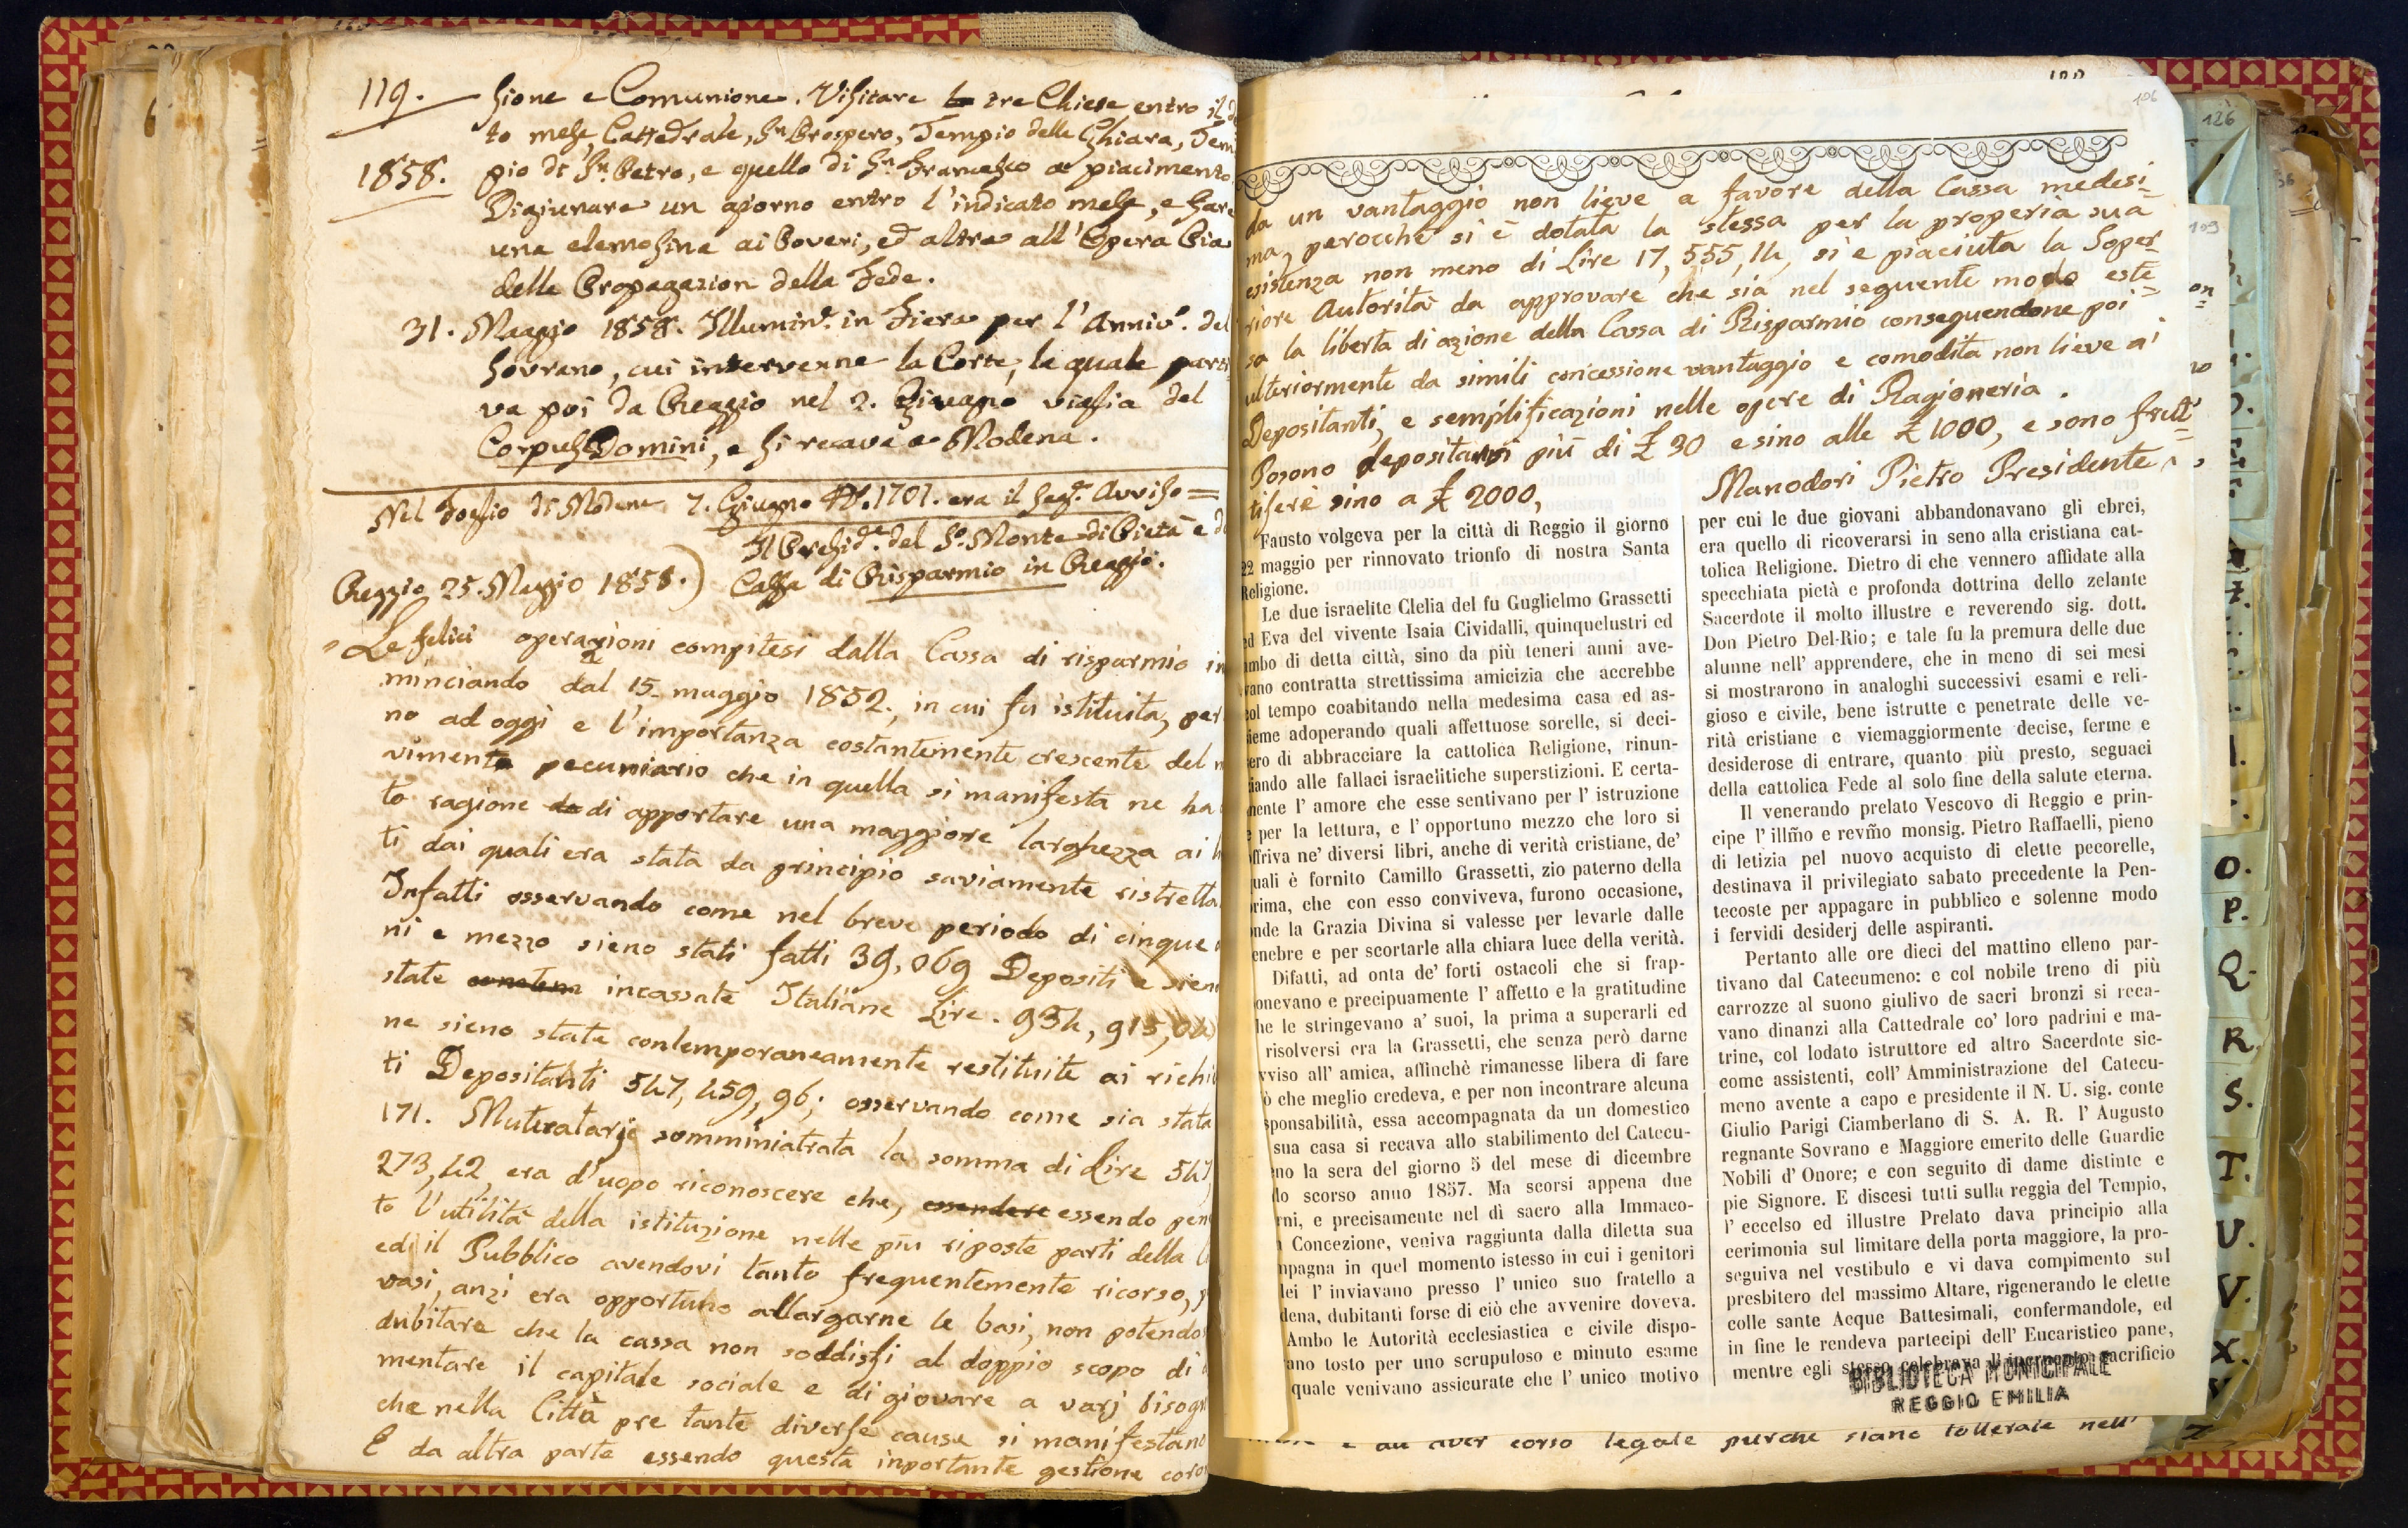 119. sione e Comunione. Visitare le tre Chiese entro il
to mese, Cattedrale, Sn Prospero, Tempio della Ghiara, Tem
1858. pio di Sn Petro, e quello di Sn Francesco a piacimento
Digiunare un giorno entro l'indicato mese, e fare
una elemosina ai Poveri, ed altra all'Opera Pia
della Propagazion della Fede.
31. Maggio 1858. Illumin.e in Fiera per l'Anniv.o del
Sovrano, cui intervenne la Corte, la quale parti
va poi da Reggio nel 2. Giugno vigilia del
Corpus Domini, e si recava a Modena.
Nel Foglio di Modena 7. Giugno N. 1701. era il seg.e Avviso =
Il Presid.e del So. Monte di Pietà e d
Reggio 25. Maggio 1858.) Cassa di Risparmio in Reggio.
" Le felici operazioni compitesi dalla Cassa di risparmio in
minciando dal 15 maggio 1852., in cui fu istituita, per
no ad oggi e l'importanza costantemente crescente del
vimento pecuniario che in quella si manifesta ne ha
to ragione di apportare una maggiore larghezza ai
ti dai quali era stata da principio saviamente ristretta
Infatti osservando come nel breve periodo di cinque
ni e mezzo sieno stati fatti 39,069 Depositi e sien
state incassate Italiane Lire. 934, 915, 04
ne sieno state contemporaneamente restituite ai richi
ti Depositanti 547, 459, 96; osservando come sia stata
171. Mutuatarj somministrata la somma di Lire 547,
273,42, era d'uopo riconoscere che, essendere essendo pen
to l'utilità della istituzione nelle più riposte parti della
ed il Pubblico avendovi tanto frequentemente ricorso,
vasi, anzi era opportuno allargarne le basi, non potendo
dubitare che la cassa non soddisfi al doppio scopo di
mentare il capitale sociale e di giovare a varj bisogn
che nella Città pre tante diverse cause si manifestano
E da altra parte essendo questa inportante gestione coro
106
da un vantaggio non lieve a favore della Cassa medesi
ma, perocchè si è dotata la stessa per la properia sua
esistenza non meno di Lire 17, 555, 14, si è piaciuta la Soper
riore Autorità da approvare che sia nel seguente modo este
sa la libertà di azione della Cassa di Risparmio conseguendone poi
ulteriormente da simili concessione vantaggio e comodità non lieve ai
Depositanti, e semplificazioni nelle opere di Ragioneria.
Posono depositarsi più di £ 30 e sino alle £ 1000, e sono frutt
ifere sino a £ 2000,
Manodori Pietro Presidente
Fausto volgeva per la città di Reggio il giorno
22 maggio per rinnovato trionfo di nostra Santa
Religione.
Le due israelite Clelia del fu Guglielmo Grassetti
ed Eva del vivente Isaia Cividalli, quinquelustri ed
ambo di detta città, sino da più teneri anni ave-
vano contratta strettissima amicizia che accrebbe
col tempo coabitando nella medesima casa ed as-
sieme adoperando quali affettuose sorelle, si deci-
sero di abbracciare la cattolica Religione, rinun-
ziando alle fallaci israelitiche superstizioni. E certa-
mente l' amore che esse sentivano per l' istruzione
e per la lettura, e l' opportuno mezzo che loro si
offriva ne' diversi libri, anche di verità cristiane, de'
quali è fornito Camillo Grassetti, zio paterno della
prima, che con esso conviveva, furono occasione,
onde la Grazia Divina si valesse per levarle dalle
tenebre e per scortarle alla chiara luce della verità.
Difatti, ad onta de' forti ostacoli che si frap-
ponevano e precipuamente l' affetto e la gratitudine
che le stringevano a' suoi, la prima a superarli ed
risolversi era la Grassetti, che senza però darne
vviso all' amica, affinchè rimanesse libera di fare
ò che meglio credeva, e per non incontrare alcuna
sponsabilità, essa accompagnata da un domestico
sua casa si recava allo stabilimento del Catecu-
eno la sera del giorno 5 del mese di dicembre
do scorso anno 1857. Ma scorsi appena due
rni, e precisamente nel dì sacro alla Immaco-
a Concezione, veniva raggiunta dalla diletta sua
mpagna in quel momento istesso in cui i genitori
lei l' inviavano presso l' unico suo fratello a
dena, dubitanti forse di ciò che avvenire doveva.
Ambo le Autorità ecclesiastica e civile dispo-
ano tosto per uno scrupuloso e minuto esame
quale venivano assicurate che l' unico motivo
per cui le due giovani abbandonavano gli ebrei,
era quello di ricoverarsi in seno alla cristiana cat-
tolica Religione. Dietro di che vennero affidate alla
specchiata pietà e profonda dottrina dello zelante
Sacerdote il molto illustre e reverendo sig. dott.
Don Pietro Del-Rio; e tale fu la premura delle due
alunne nell' apprendere, che in meno di sei mesi
si mostrarono in analoghi successivi esami e reli-
gioso e civile, bene istrutte e penetrate delle ve-
rità cristiane e viemaggiormente decise, ferme e
desiderose di entrare, quanto più presto, seguaci
della cattolica Fede al solo fine della salute eterna.
Il venerando prelato Vescovo di Reggio e prin-
cipe l' illm̃o e revm̃o monsig. Pietro Raffaelli, pieno
di letizia pel nuovo acquisto di elette pecorelle,
destinava il privilegiato sabato precedente la Pen-
tecoste per appagare in pubblico e solenne modo
i fervidi desiderj delle aspiranti.
Pertanto alle ore dieci del mattino elleno par-
tivano dal Catecumeno: e col nobile treno di più
carrozze al suono giulivo de sacri bronzi si reca-
vano dinanzi alla Cattedrale co' loro padrini e ma-
trine, col lodato istruttore ed altro Sacerdote sic-
come assistenti, coll' Amministrazione del Catecu-
meno avente a capo e presidente il N. U. sig. conte
Giulio Parigi Ciamberlano di S. A. R. l' Augusto
regnante Sovrano e Maggiore emerito delle Guardie
Nobili d' Onore; e con seguito di dame distinte e
pie Signore. E discesi tutti sulla reggia del Tempio,
l' eccelso ed illustre Prelato dava principio alla
cerimonia sul limitare della porta maggiore, la pro-
seguiva nel vestibulo e vi dava compimento sul
presbitero del massimo Altare, rigenerando le elette
colle sante Acque Battesimali, confermandole, ed
in fine le rendeva partecipi dell' Eucaristico pane,
mentre egli stesso celebrava l' incruento sacrificio
BIBLIOTECA MUNICIPALE
REGGIO EMILIA
aver corso legale purchè siano tollerate nell'
126
109
O.
P.
Q.
R.
S.
T.
U.
V.
X.
Z